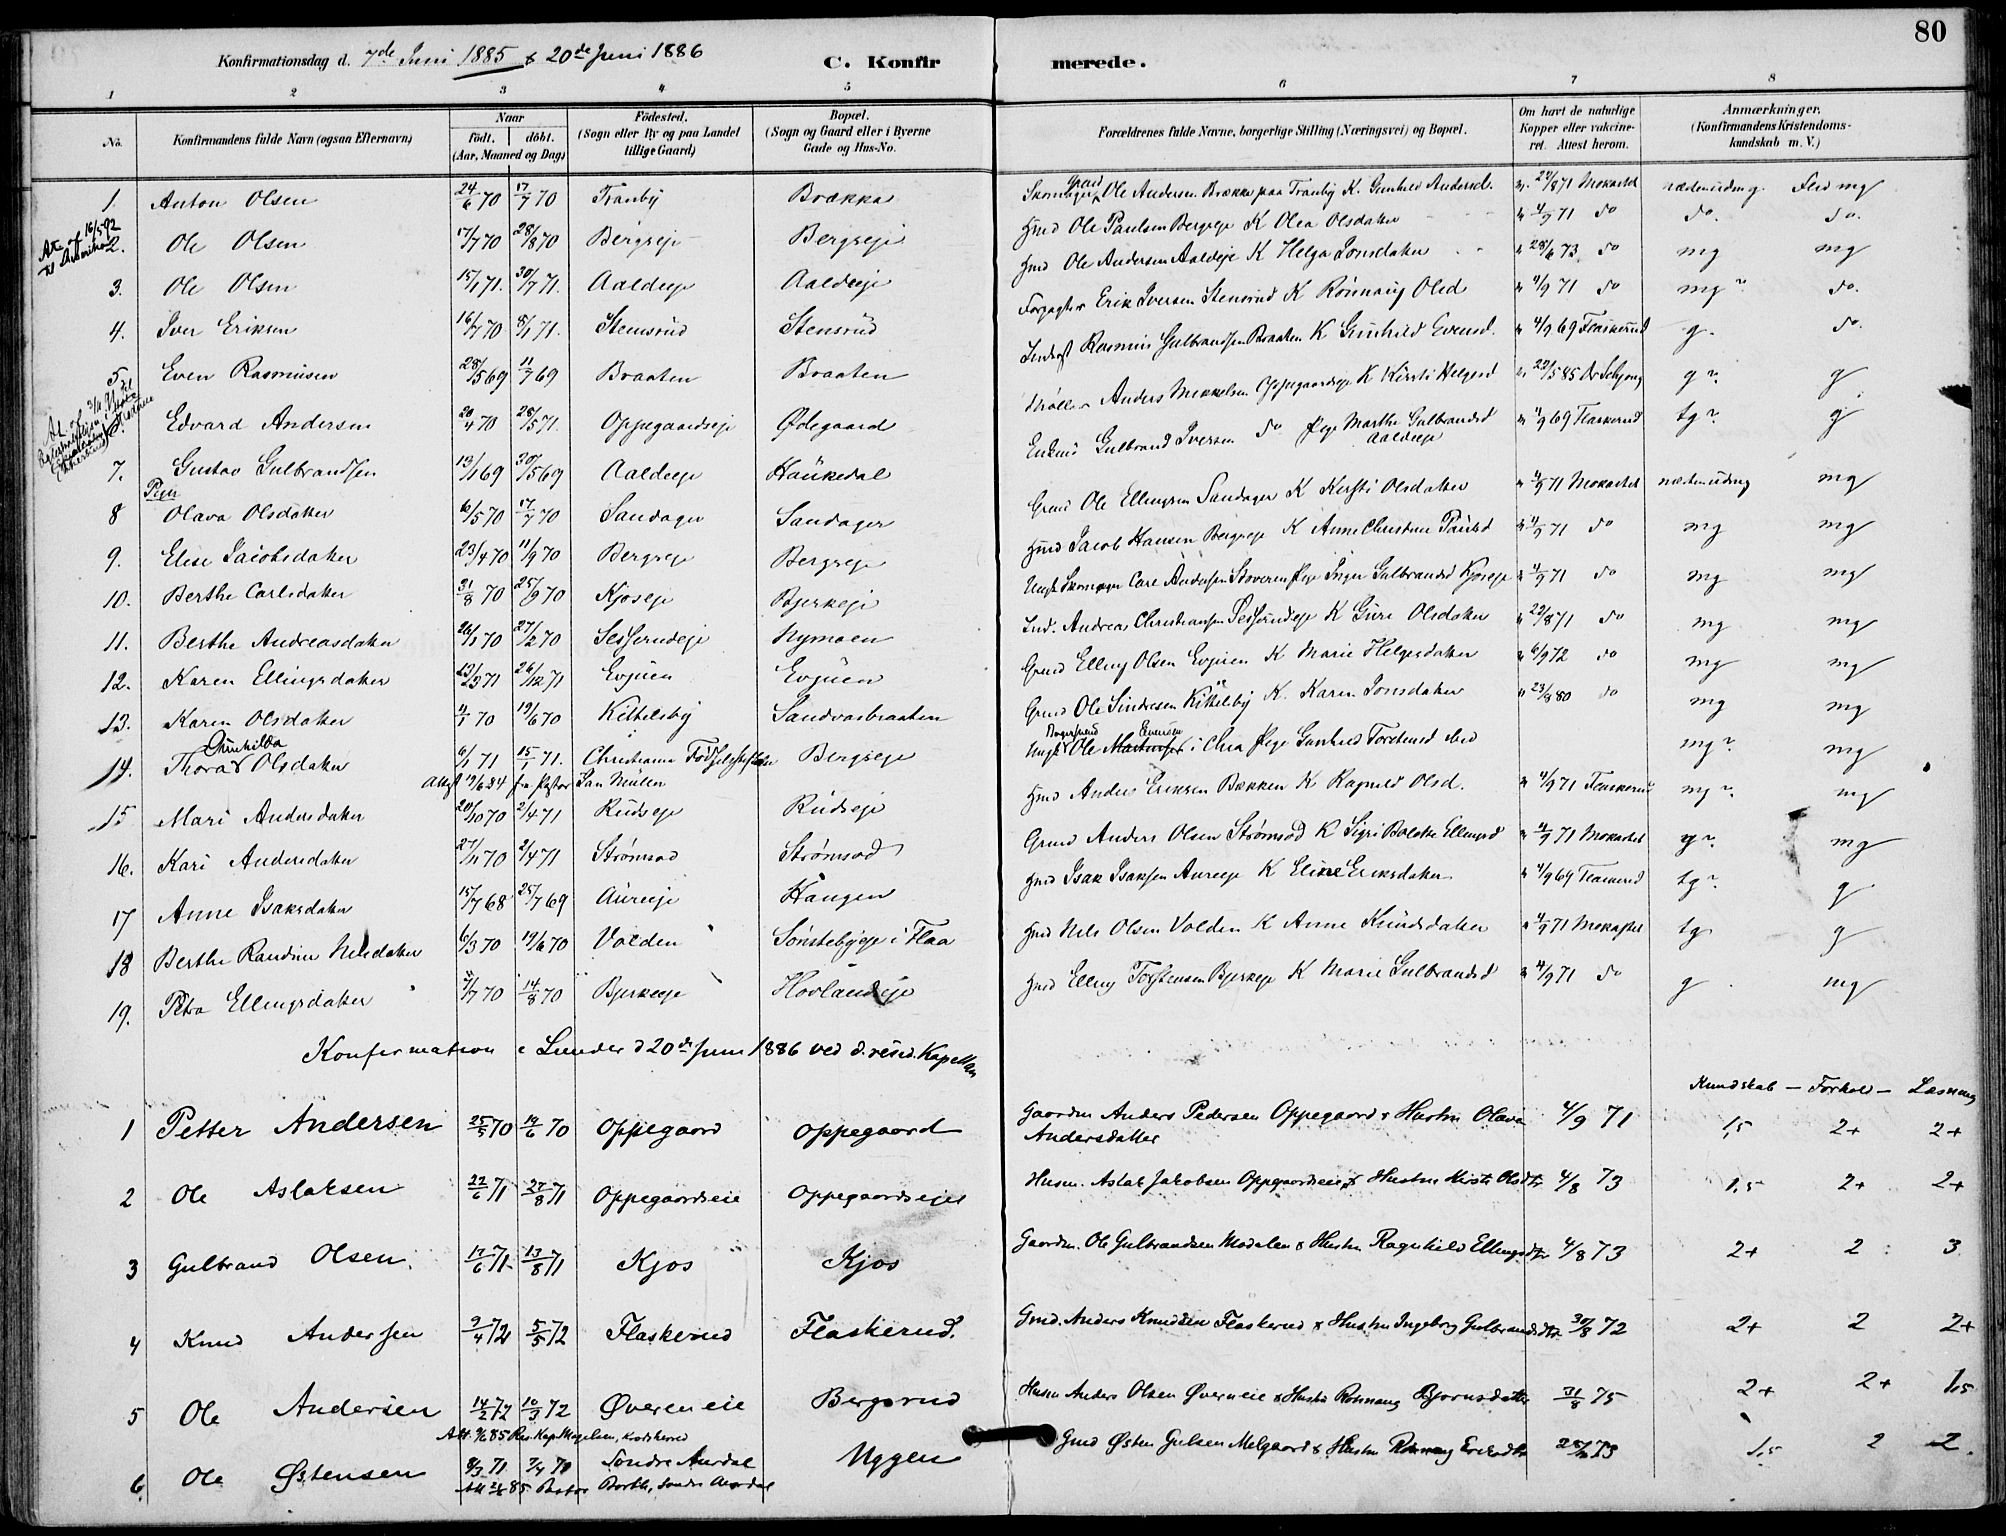 80
Konfirmationsdag d. 7de Juni 1885 & 20de Juni 1886 C. Konfirmerede.
1 2 3 4 5 6 7 8
No. Konfirmandens fulde Navn (ogsaa Efternavn) Naar født. døbt. (Aar, Maaned og Dag) Fødested. (Sogn eller By og paa Landet tillige Gaard) Bopæl. (Sogn og Gaard eller i Byerne Gade og Hus-No. Forældrenes fulde Navne, borgerlige Stilling (Næringsvei) og Bopæl. Om havt de naturlige Kopper eller vakcineret. Attest herom. Anmærkninger. (Konfirmandens Kristendomskundskab m. V.)
1. Anton Olsen 24/6 70 17/7 70 Tranby Brække Ole Andersen Brække paa Tranby K. Gunhild Andersd. 22/8 71 Mokastet mg
Att. af 16/5 92 til Amerika
2. Ole Olsen 17/7 70 28/8 70 Bergseje Bergseje Hmd Ole Paulsen Bergseje K Olea Olsdatter 4/9 71 do do. do.
3. Ole Olsen 15/1 71. 30/7 71. Aaldseje Aaldseje Hmd Ole Andersen Aaldseje K Helga Jonsdatter 28/6 73 do mg mg
4. Iver Eriksen 16/7 70 8/1 71. Stensrud Stensrud Forpagter Erik Iversen Stensrud K Rønnaug Olsd 4/9 71 do mg? do.
5. Even Rasmusen 28/5 69 11/7 69 Braaten Braaten Inderst Rasmus Gulbrandsen Braaten K Gunhild Evensd. 4/9 69 Flaskerud g. do.
Edvard Andersen 20/4 70 28/5 71. Oppegaardseje Ødegaard Anders Mikkelsen Oppegaardseje K Kirsti Helgesd 22/5 85 Dr Schjong g?. g
7. Gustav Gulbrandsen 13/1 69 30/5 69 Aaldseje Haukedal Enkem Gulbrand Iversen do Pige Marthe Gulbrandsd Aaldseje 4/9 69 Flaskerud tg?. g
Piger
8 Olava Olsdatter 6/5 70 17/7 70 Sandager Sandager Gmd Ole Ellingsen Sandager K Kirsti Olsdatter 4/9 71 Mokastet mg
9. Elise Jacobsdatter 23/4 70 11/9 70 Bergseje Bergseje Hmd Jacob Hansen Bergseje K Anne Christine Paulsd 4/9 71 do mg mg
10. Berthe Carlsdatter 31/8 70 25/9 70 Kjoseje Bjerkeje Ungk Skomager Carl Andersen Pige Inger Gulbrandsd Kjoseje 4/9 71 do mg mg
11. Berthe Andreasdatter 26/1 70 27/2 70 Sesserudeje Nymoen Ind. Andreas Christiansen Sesserudeje K Guri Olsdatter 22/8 71 do mg mg
12. Karen Ellingsdatter 13/9 71 26/12 71 Evjuen Evjuen Gmd Elling Olsen Evjuen K Marie Helgesdatter 6/9 72 do mg mg
13. Karen Olsdatter 11/1 70 19/6 70 Kittelsby Sandvasbraaten Gmd Ole Sindresen Kittelsby K. Karen Jonsdatter 23/8 80 do mg mg
14. Thora Gunhilda Olsdatter 6/1 71 15/1 71. Christiania Fødselsstiftelse Bergseje Ungk Ole Evensen i Chra Pige Gunhild Torstensd mg?. mg
Attest 19/6 84 fra Pastor
15 Mari Andersdatter 20/10 70 2/4 71 Rudseje Rudseje Hmd Anders Eriksen Bækken K Ragnild Olsd. 4/9 71 Flaskerud mg?. mg
16. Kari Andersdatter 27/11 70 2/4 71 Strømsod Strømsod Gmd Anders Olsen Strømsod K Sigri Ellingsd 4/9 71 Mokastet g?. mg
17 Anne Isaksdatter 15/7 68 25/7 69 Aureeje Haugen Hmd Isak Isaksen Aureeje K Eline Eriksdatter 4/9 69 Flaskerud tg?. g
18 Berthe Randine Nilsdatter 6/3 70 19/6 70 Volden Sønstebyeje i Flaa Hmd Nils Olsen Volden K Anne Knudsdatter 4/9 71 Mokastet tg g
19. Petra Ellingsdatter 4/7 70 14/8 70 Bjerkeeje Hovlandseje Hmd Elling Torstensen Bjerkeje K Marie Gulbrandsd 4/9 71 do g mg
Konfirmation i Lunder d 20de Juni 1886 ved d. resid. Kapellan
Kundskab — Forhold — Læsning
1 Petter Andersen 25/5 70 12/6 70 Oppegaard Oppegaard Gaardm Anders Pedersen Oppegaard & Hustru Olava Andersdatter 4/9 71 1,5 2+ 2+
2 Ole Aslaksen 22/6 71 27/8 71 Oppegaardseie Oppegaardsejet Husm. Aslak Jakobsen Oppegaardseie & Hustru Kirsti Olsdtr 4/8 73 1,5 2+ 2+
3 Gulbrand Olsen. 17/6 71. 13/8 71 Kjos Kjos Gaardm. Ole Gulbrandsen Modalen & Hustru Ragnhild Ellingsdtr 4/8 73 2+ 2 3
4 Knud Andersen 9/4 72 5/5 72 Flaskerud Flaskerud. Gmd. Anders Knudsen Flaskerud & Hustru Ingeborg Gulbrandsdtr 30/8 72 2+ 2 2+
5 Ole Andersen 14/2 72 10/3 72 Øvereneie Bergsrud Husm Anders Olsen Øverneie & Hustru Rønnaug Bjørnsdatter 31/8 75 2+ 2+ 1,5
6. Ole Østensen 8/3 71 Søndre Aurdal Uggen Gmd Østen Melgaard & Hustru Eriksdtr 1,5 2 2.